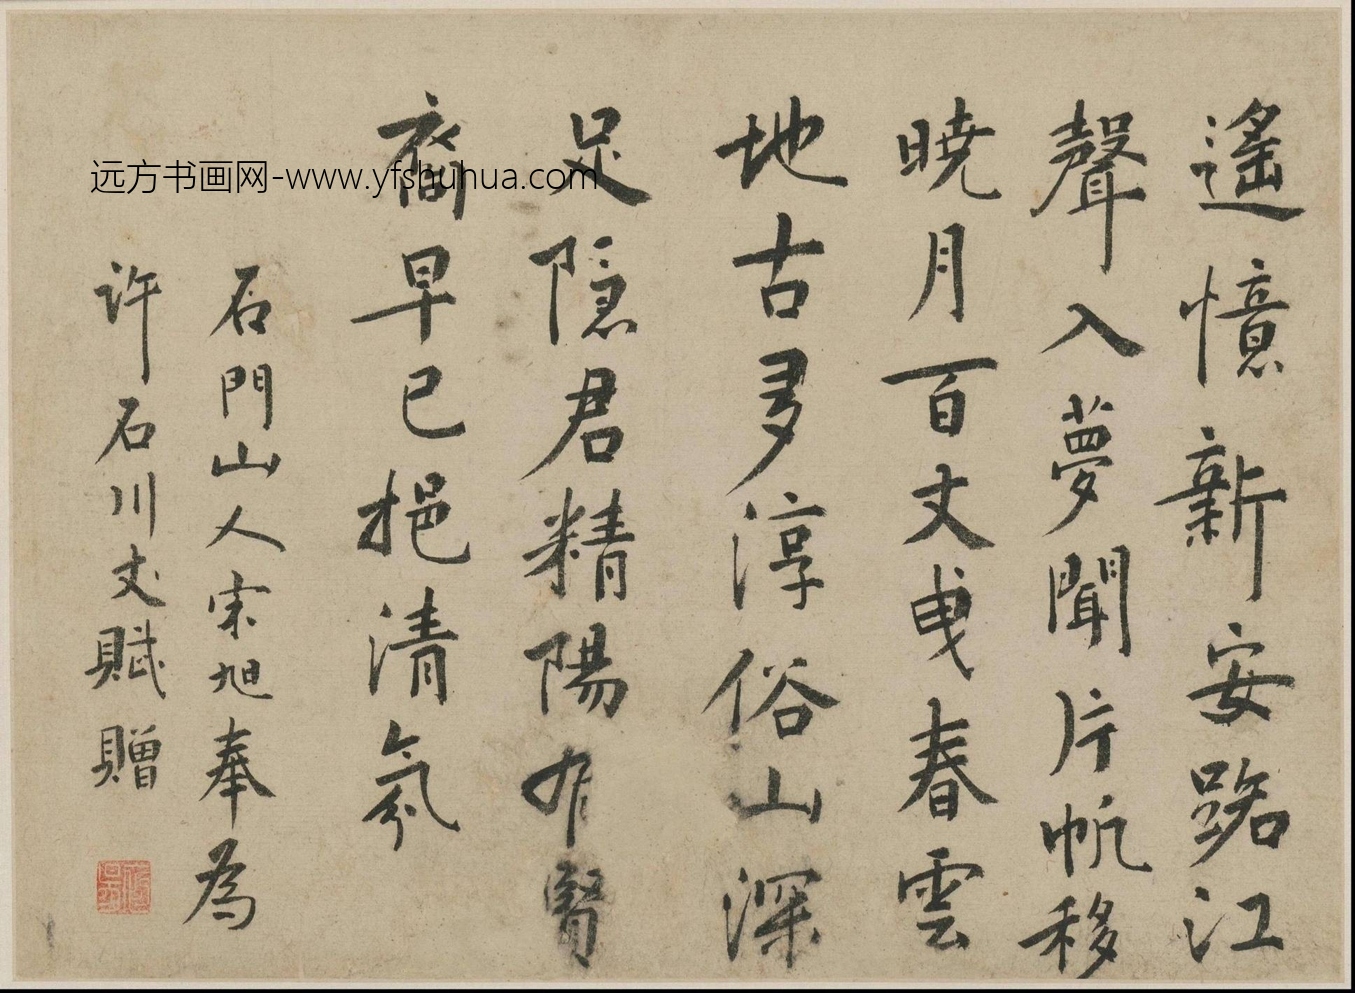 遙憶新安路江
聲入夢聞片帆移
曉月百丈曳春雲
地古多淳俗山深
足隱君精陽有賢
裔早已挹清氛
石門山人宋旭奉為
許石川丈賦贈
远方书画网-www.yfshuhua.com